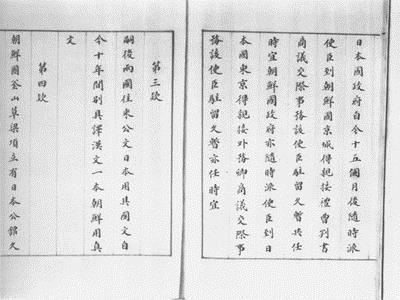 日本國政府自今十五個月後隨時派
使臣到朝鮮國京城得親接禮曹判書
商議交際事務該使臣駐留久暫共任
時宜朝鮮國政府亦隨時派使臣到日
本國東京得親接外務卿商議交際事
務該使臣駐留久暫亦任時宜
第三款
嗣後兩國往來公文日本用其國文自
今十年間別具譯漢文一本朝鮮用真
文
第四款
朝鮮國釜山草梁項立有日本公館久